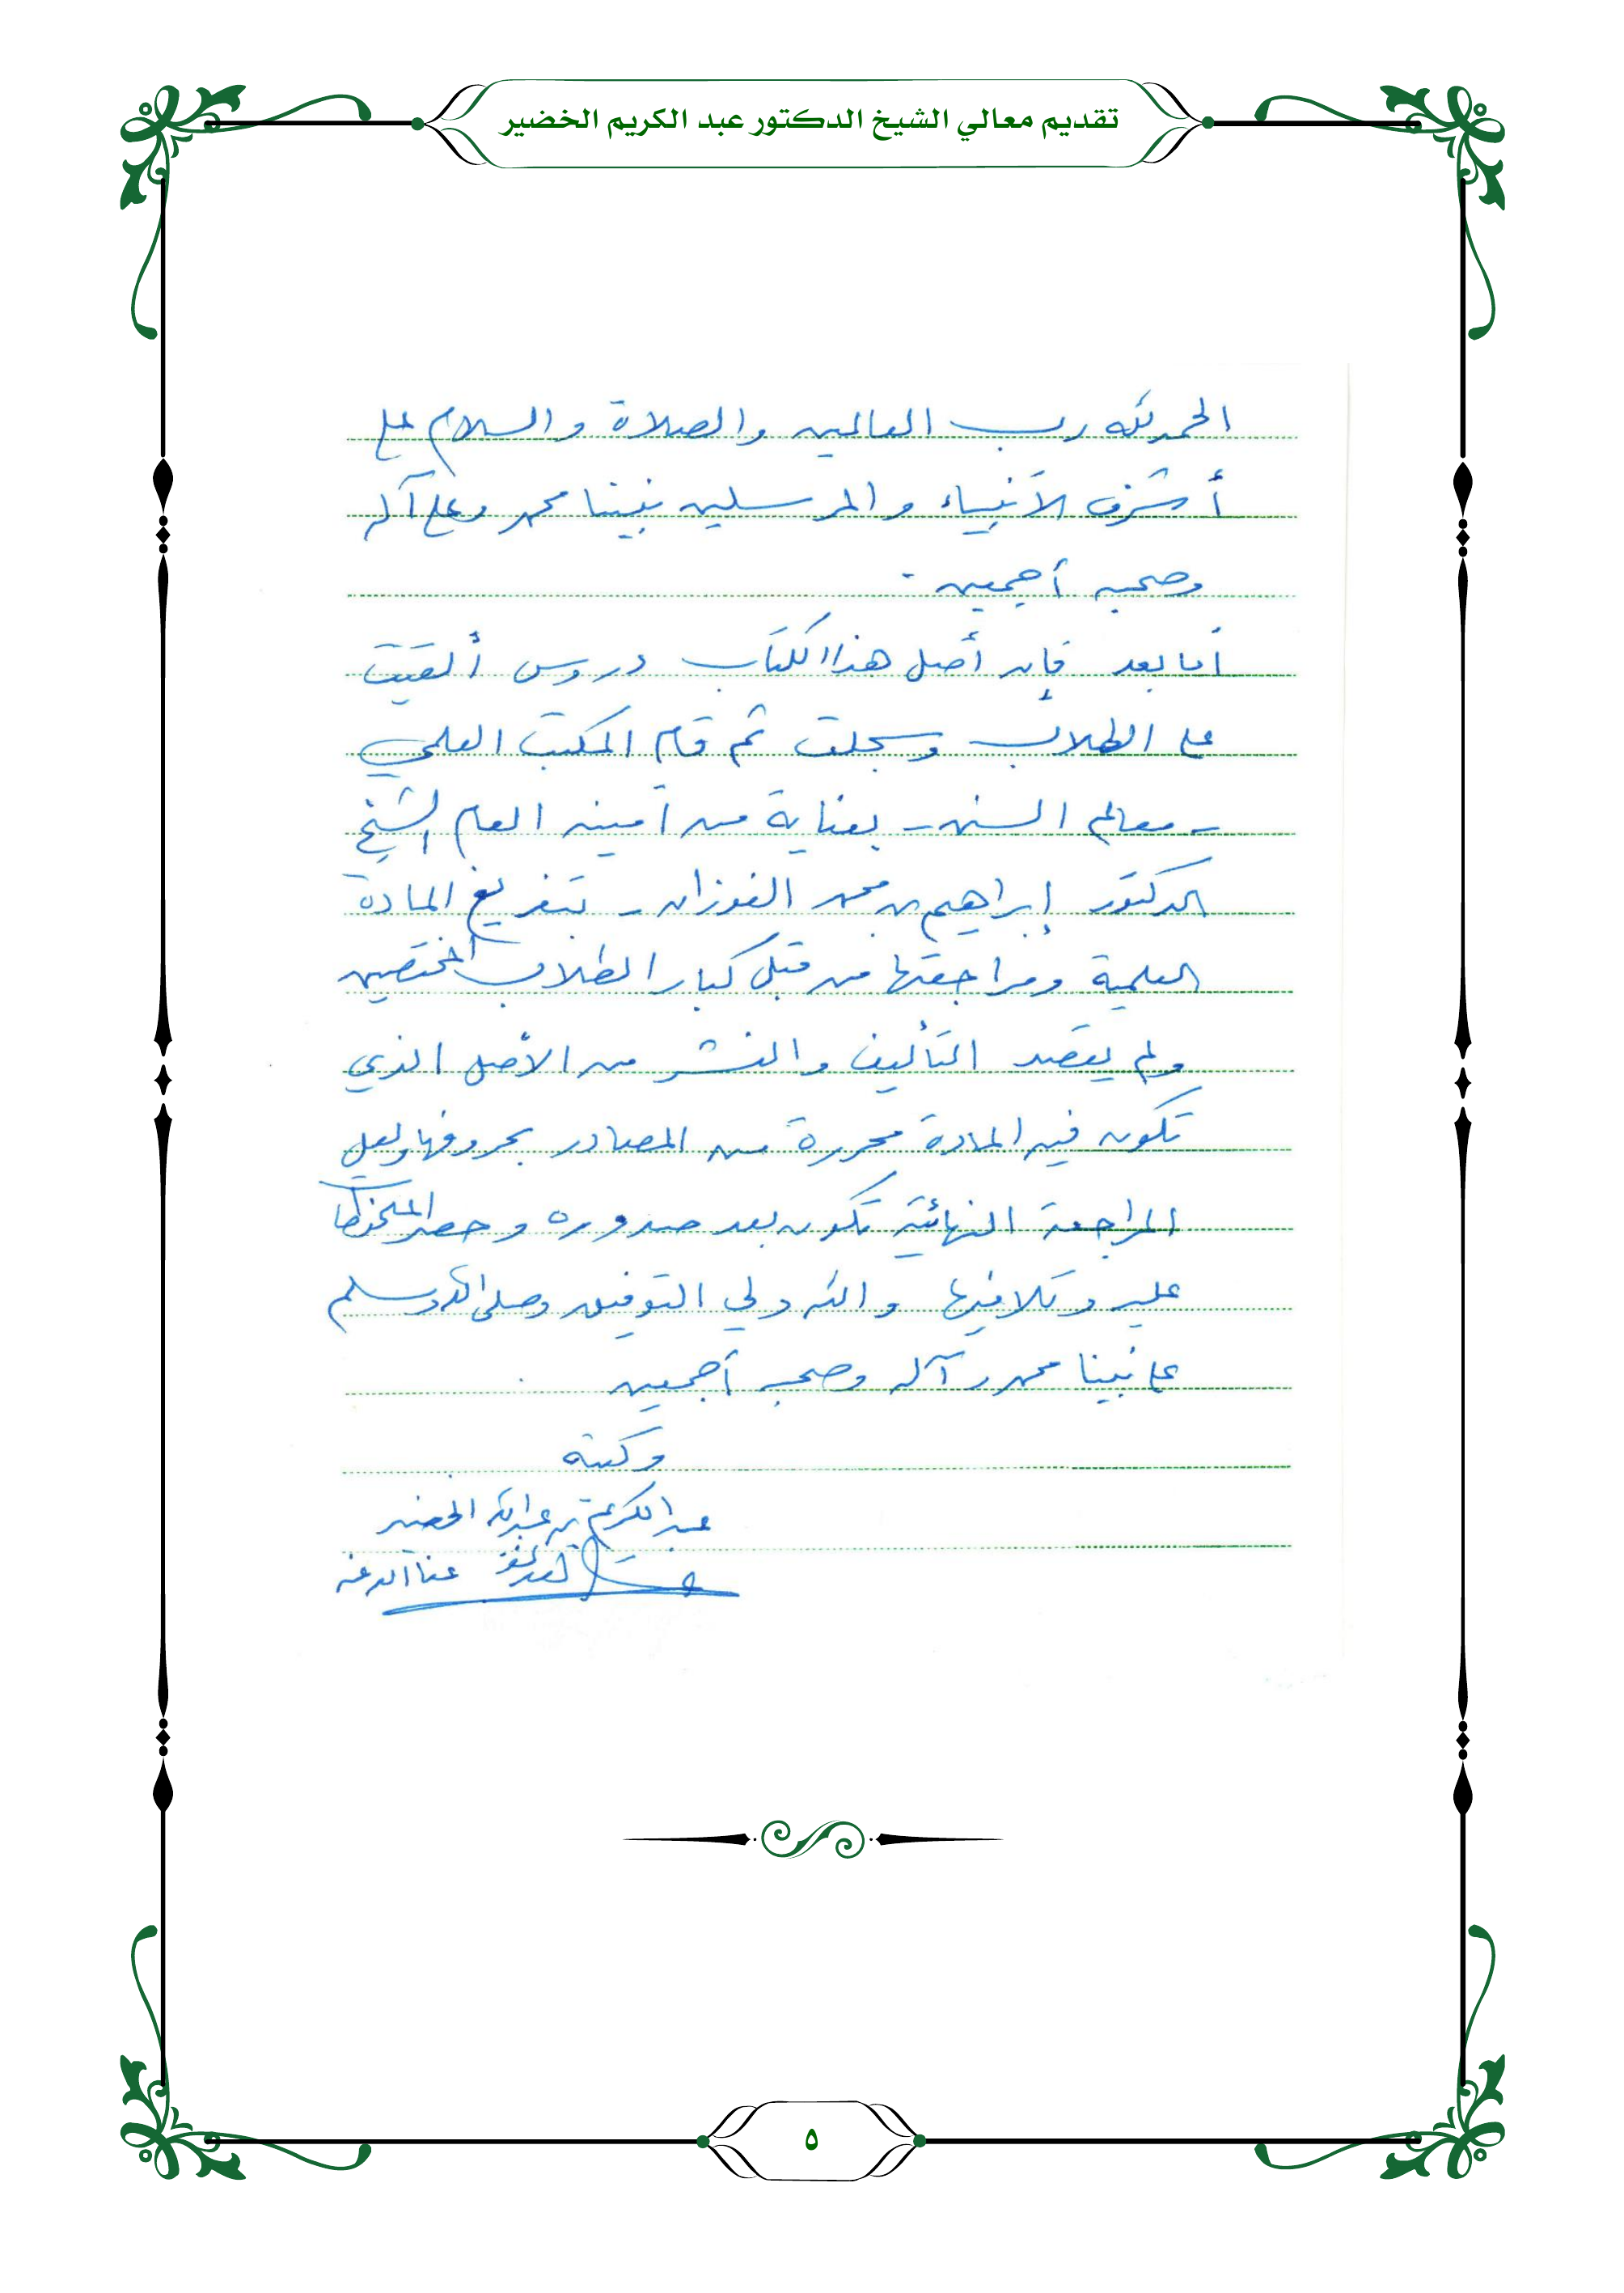 تقديم معالي الشيخ الدكتور عبد الكريم الخضير
الحمد لله رب العالمين والصلاة والسلام على
أشرف الأنبياء والمرسلين نبينا محمد وعلى آله
وصحبه أجمعين .
أما بعد فإن أصل هذا الكتاب دروس ألقيت
على الطلاب وسجلت ثم قام المكتب العلمي
- معالم السنن - بعناية من أمينه العام الشيخ
الدكتور إبراهيم بن محمد الفوزان - بتفريغ المادة
العلمية ومراجعتها من قبل كبار الطلاب المختصين
ولم يقصد التأليف والنشر من الأصل الذي
تكون فيه المادة محررة من المصادر بحروفها ولعل
المراجعة النهائية تكون بعد صدوره وحصر الملحوظات
عليه وتلافيها والله ولي التوفيق وصلى الله وسلم
على نبينا محمد وآله وصحبه أجمعين
وكتبه
عبد الكريم بن عبد الله الخضير
عفا الله عنه
٥